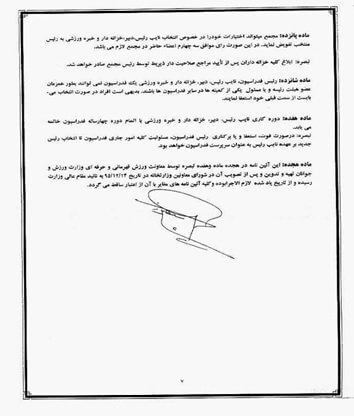 ماده پانزده: مجمع میتواند اختیارات خودرا در خصوص انتخاب نایب رئیس،دبیر،خزانه دار و خبره ورزشی به رئیس
منتخب تفویض نماید. در این صورت رای موافق سه چهارم اعضاء حاضر در مجمع لازم می باشد.
تبصره: ابلاغ کلیه خزانه داران پس از تأیید مراجع صلاحیت دار ذیربط توسط رئیس مجمع صادر خواهد شد.
ماده شانزده: رئیس فدراسیون، نایب رئیس، دبیر، خزانه دار و خبره ورزشی یک فدراسیون نمی توانند بطور همزمان
عضو هیئت رئیسه و یا مسئول یکی از کمیته ها در سایر فدراسیون ها باشند. بدیهی است افراد در صورت انتخاب می-
بایست از سمت قبلی خود استعفا نمایند.
ماده هفده: دوره کاری نایب رئیس، دبیر، خزانه دار و خبره ورزشی با اتمام دوره چهارساله فدراسیون خاتمه
می یابد.
تبصره: درصورت فوت، استعفا و یا برکناری رئیس فدراسیون، مسئولیت کلیه امور جاری فدراسیون تا انتخاب رئیس
جدید بر عهده نایب رئیس به عنوان سرپرست فدراسیون خواهد بود.
ماده هجده: این آئین نامه در هجده ماده وهفده تبصره توسط معاونت ورزش قهرمانی و حرفه ای وزارت ورزش و
جوانان تهیه و تدوین و پس از تصویب آن در شورای معاونین وزارتخانه در تاریخ ۹۵/۱۲/۱۴ به تائید مقام عالی وزارت
رسیده و از تاریخ یاد شده لازم الاجرابوده وکلیه آئین نامه های مغایر با آن از اعتبار ساقط می گردد.
۷